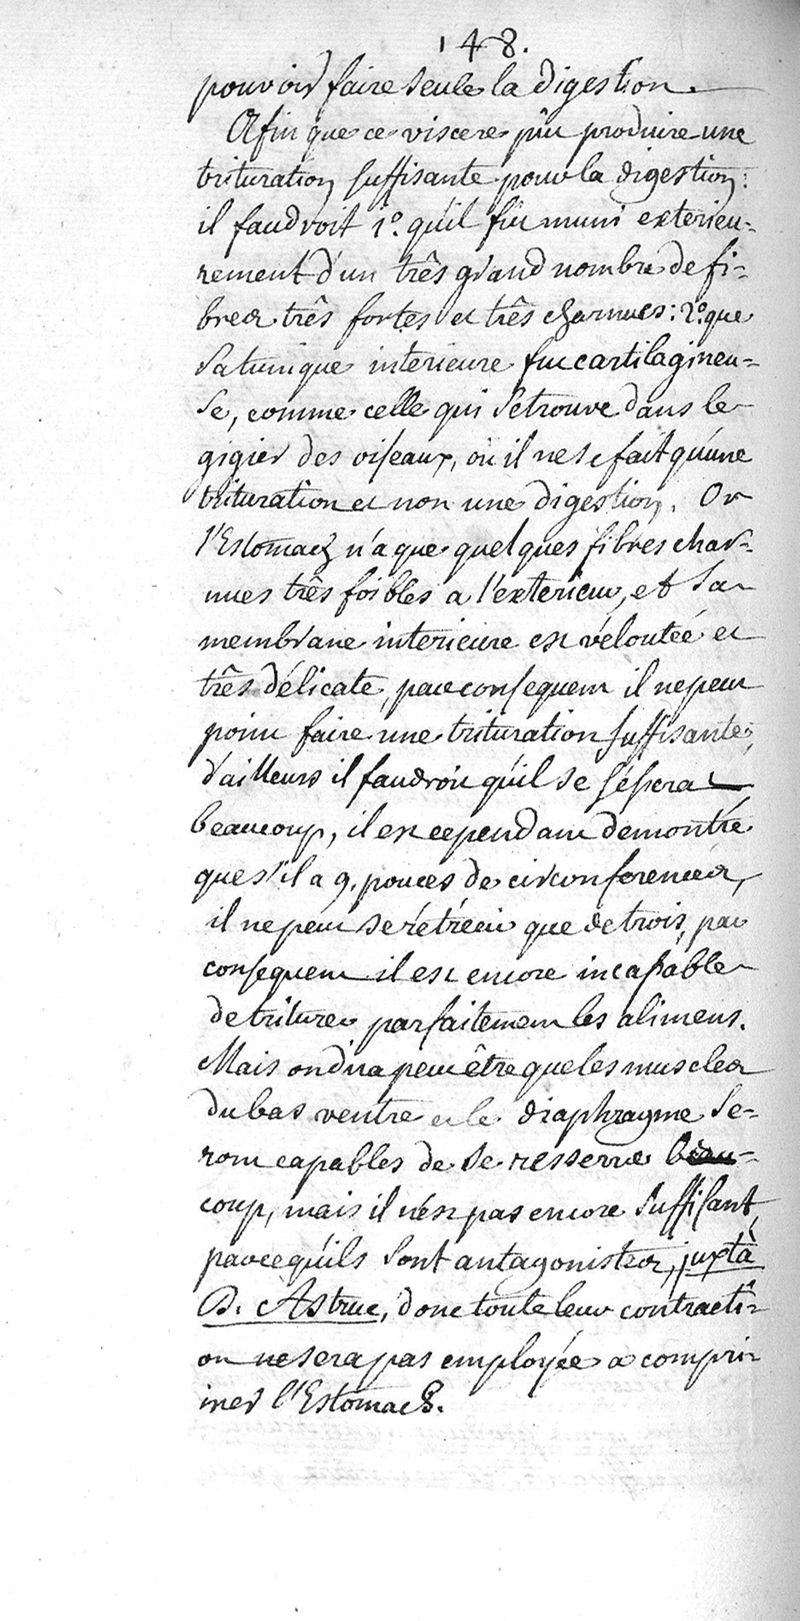 148.
pouvoir faire seule la digestion.
Afin que ce viscere pût produire une
trituration suffisante pour la digestion:
il faudroit 1º. qu'il fut muni exterieu-
rement d'un três grand nombre de fi-
bres três fortes et três charnues: 2º. que
sa tunique interieure fut cartilagineu-
se, comme celle qui se trouve dans le
gigier des oiseaux, où il ne se fait qu'une
trituration et non une digestion. Or
l'Estomach n'a que quelques fibres char-
nues três foibles a l'exterieur, et sa
membrane interieure est veloutée et
três délicate, par consequent il ne peut
point faire une trituration suffisante,
d'ailleurs il faudroit qu'il se
beaucoup, il est cependant demontré
que s'il a 9. pouces de circonference,
il ne peut se rétrécir que de trois, par
consequent il est encore incapable
de triturer parfaitement les alimens.
Mais on dira peut être que les muscles
du bas ventre et le diaphragme se-
ront capables de se resserrer beau-
coup, mais il n'est pas encore suffisant,
parce qu'ils sont antagonistes, juxtà
D. Astruc, donc toute leur contracti-
on ne sera pas employée a compri-
mer l'Estomach.